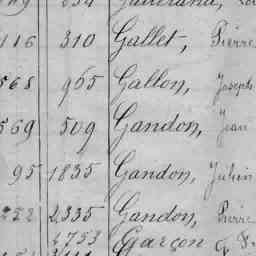 116 310 Gallet, Pierre
568 965 Gallon, Joseph
569 509 Gandon, Jean
95 1835 Gandon, Julien
2335 Gandon, Pierre
1753 Garçon